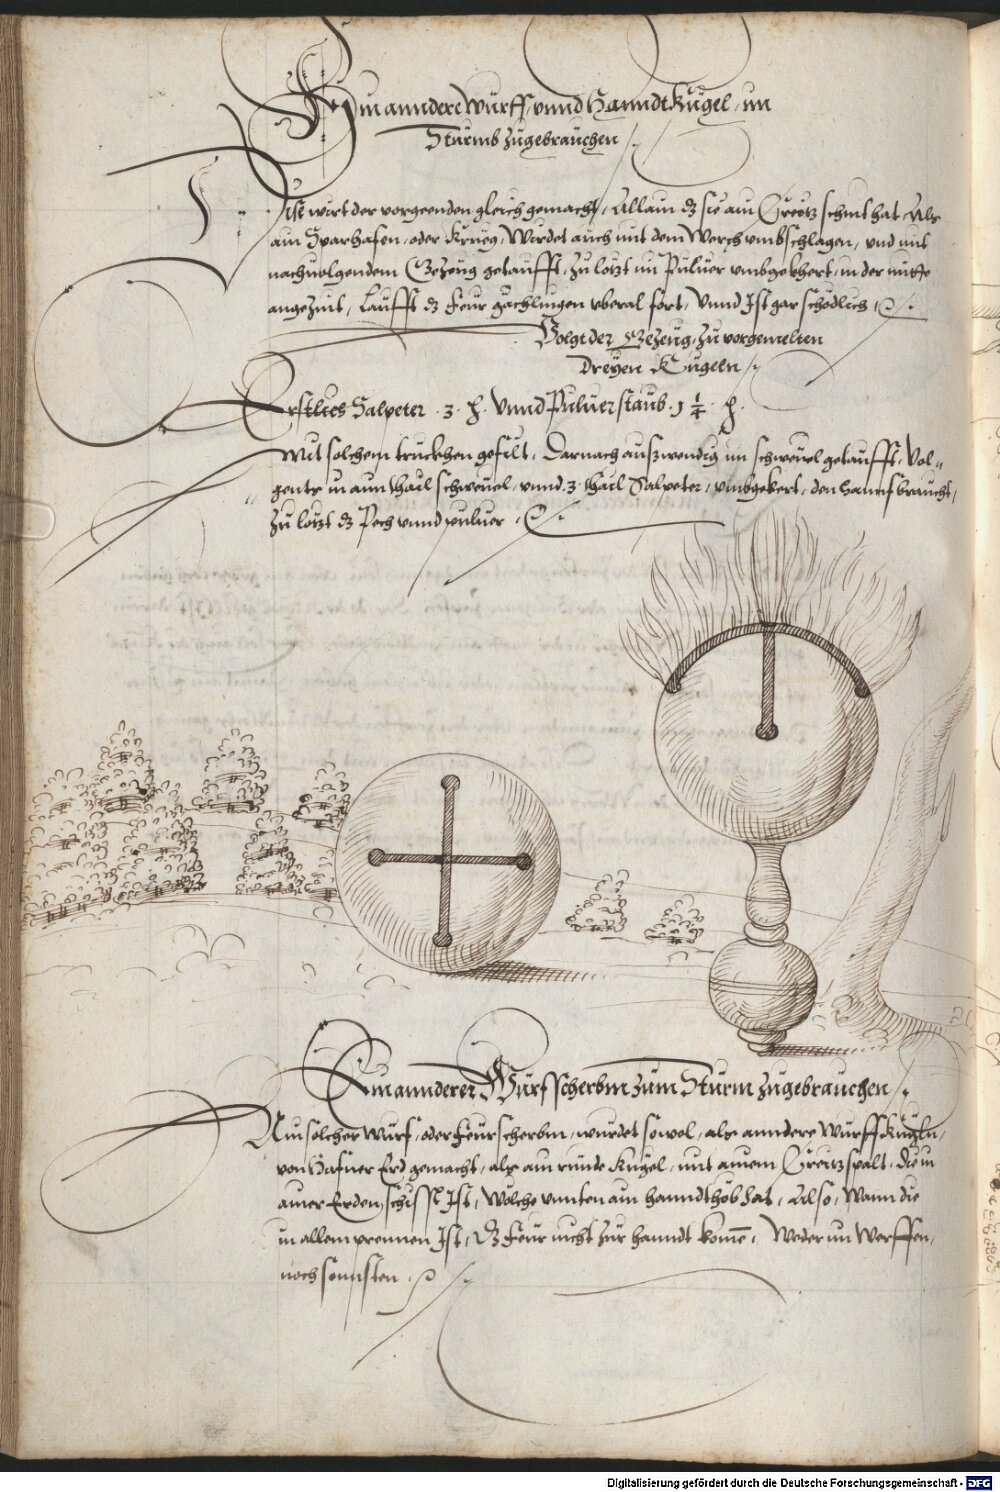 Ein anndere Wurff, vnnd Hanndt Kugel, im
Sturmb zugebrauchen
Dise wirt der vorgeenden gleich gemacht, Allain dz sie ain Creutz schnit hat, Als
ain Sparhafen, oder Krueg, Wirdet auch mit dem Werch vmbschlagen, vnd mit
nachuolgendem Gezeug getaufft, zu letzt im Puluer vmbgekhert, in der mitte
angezint, Laufft dz Feur gächlingen vberal fort, Vnnd Ist gar schödlich
Volgt der Gezeug, zu vorgemelten
Dreyen Kugeln
Erstlich Salpeter 3 ℔. Vnnd Puluerstaub 1 1/4 ℔.
Mit solchem truckhen gefilt, Darnach auszwendig im schweuel getaufft, Vol-
gents in ain thail schweuel, vnnd 3 thail Salpeter, vmbgekert, den hannf braucht,
zu letzt dz Pech vnnd puluer
Ein annderer Wurfscherbm zum Sturm zugebrauchen
Ain solcher Wurf, oder Feurscherbm, wirdet sowol, als anndere Wurff Kugln,
von Hafner Erd gemacht, als ain runde Kugel, mit ainem Creutzspalt, Die in
ainer Erden schissl Ist, Wölche vnnten ain hanndthöb hat, Also, Wann die
in allem prennen Ist, Dz Feur nicht zur hanndt kome, Weder im Werffen,
noch sonnsten
Digitalisierung gefördert durch die Deutsche Forschungsgemeinschaft - DFG